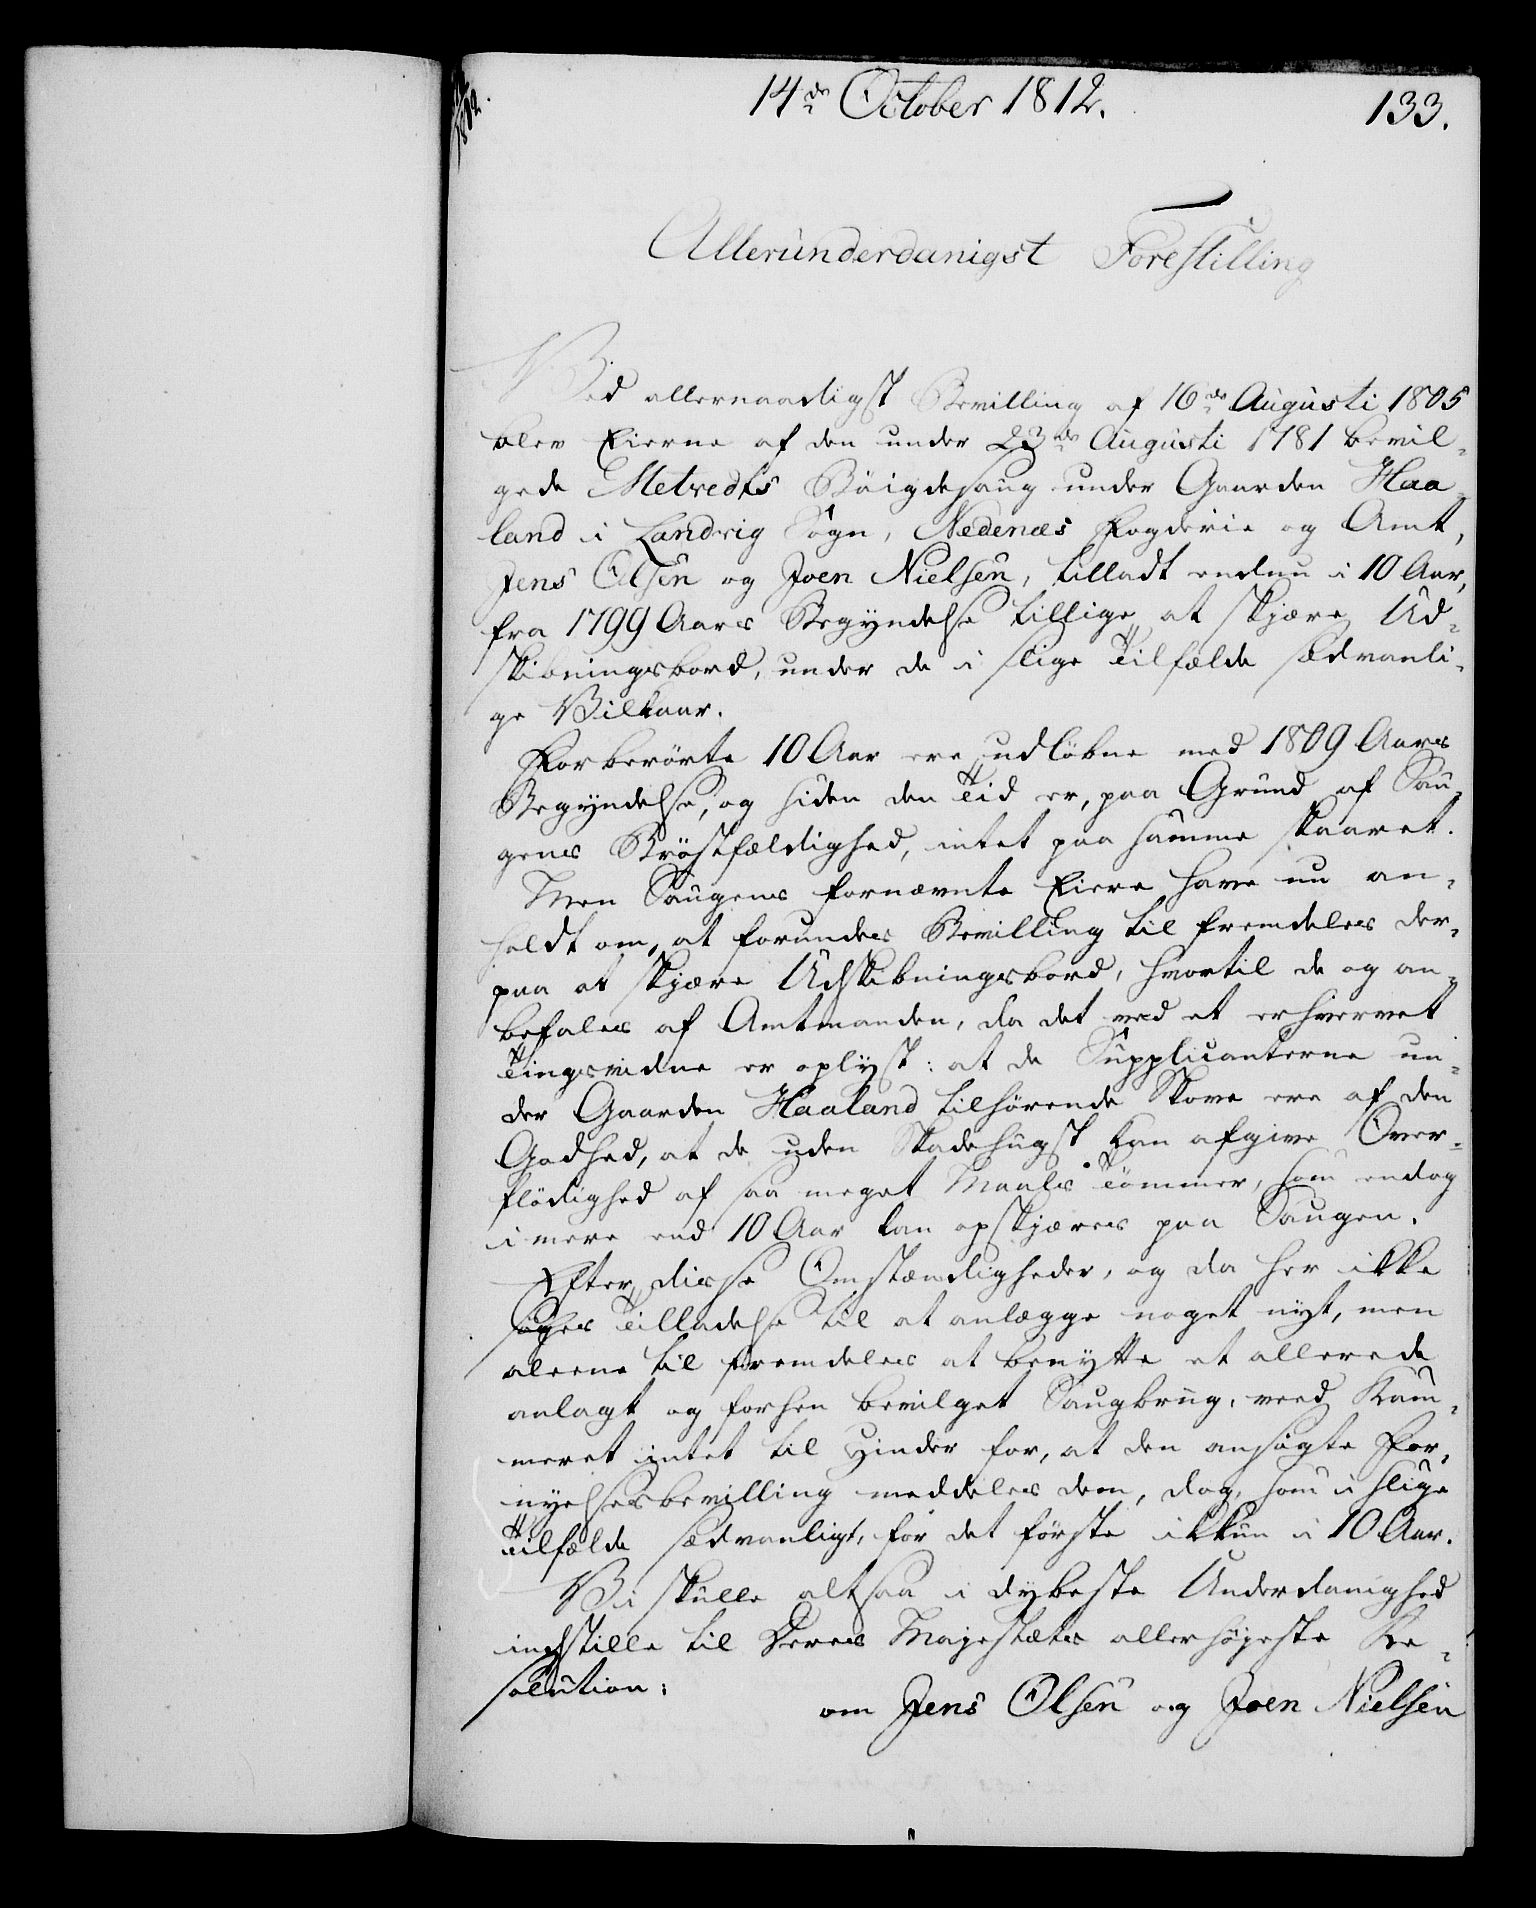 14de October 1812.
133.
Allerunderdanigst Forestilling
Ved allernaadigst Bevilling af 16de Augusti 1805
blev Eierne af den under 23de Augusti 1781 bevil-
gede Metvedts Böigdesaug under Gaarden Haa-
land i Landvig Sogn, Nedenæs Fogderie og Amt,
Jens Olsen og Joen Nielsen, tilladt endnu i 10 Aar,
fra 1799 Aars Begyndelse tillige at skjære Ud-
skibningsbord, under de i slige Tilfælde sædvanli-
ge Vilkaar.
Forberörte 10 Aar ere udlöbne med 1809 Aars
Begyndelse, og siden den Tid er, paa Grund af Sau-
gens Bröstfældighed, intet paa samme skaaret.
Men Saugens fornævnte Eiere have nu an-
holdt om, at forundes Bevilling til fremdeles der-
paa at skjære Udskibningsbord, hvortil de og an-
befales af Amtmanden, da det ved et erhvervet
Tingsvidne er oplyst: at de Supplicanterne un-
der Gaarden Haaland tilhörende Skove ere af den
Godhed, at de uden Skadehugst kan afgive Over-
flödighed af saa meget Maals Tömmer, som endog
i mere end 10 Aar kan opskjæres paa Saugen.
Efter disse Omstændigheder, og da her ikke
söges Tilladelse til at anlægge noget nyt, men
aleene til fremdeles at benytte et allerede
anlagt og forhen bevilget Saugbrug, veed Kam-
meret intet til Hinder for, at den ansögte For-
nyelsesbevilling meddeles dem, dog, som i slige
Tilfælde sædvanligt, for det förste ikkun i 10 Aar.
Vi skulle altsaa i dybeste Underdanighed
indstille til Deres Majestæts allerhöjeste Re-
solution:
om Jens Olsen og Joen Nielsen